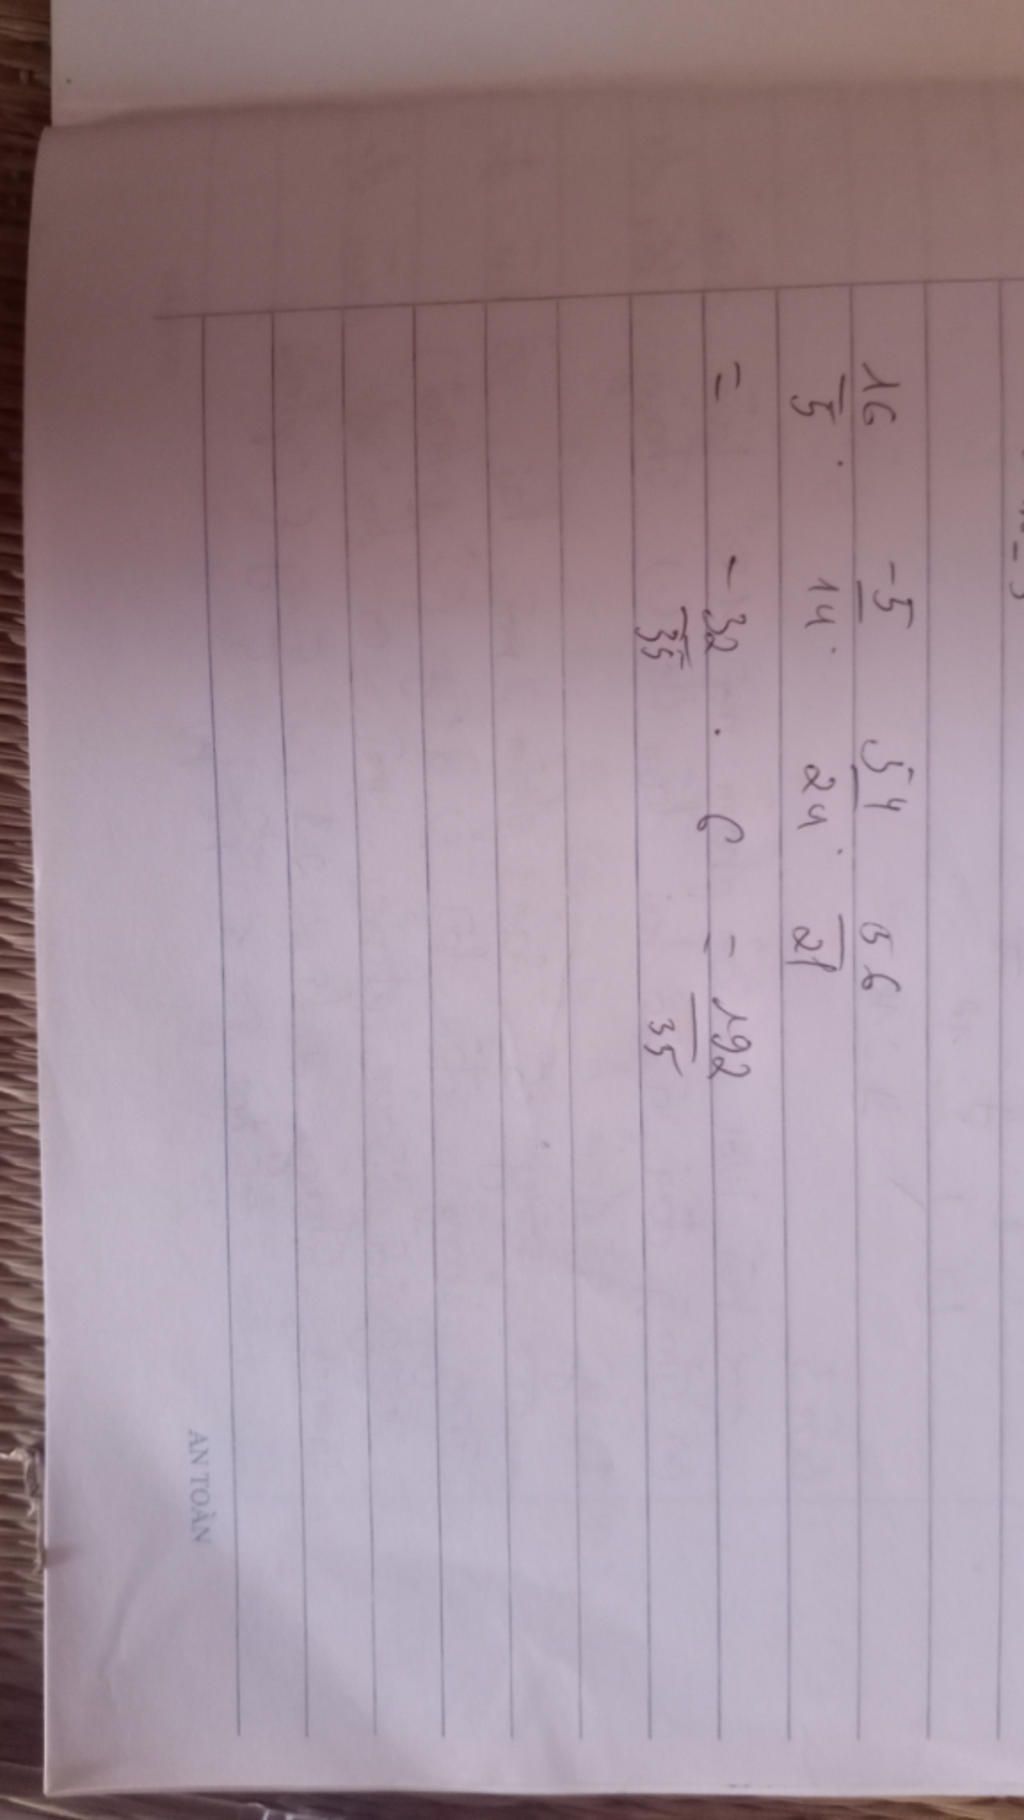 16/5 . -5/14 . 54/24 . 56/21
= -32/35 . 6 = 192/35
AN TOÀN